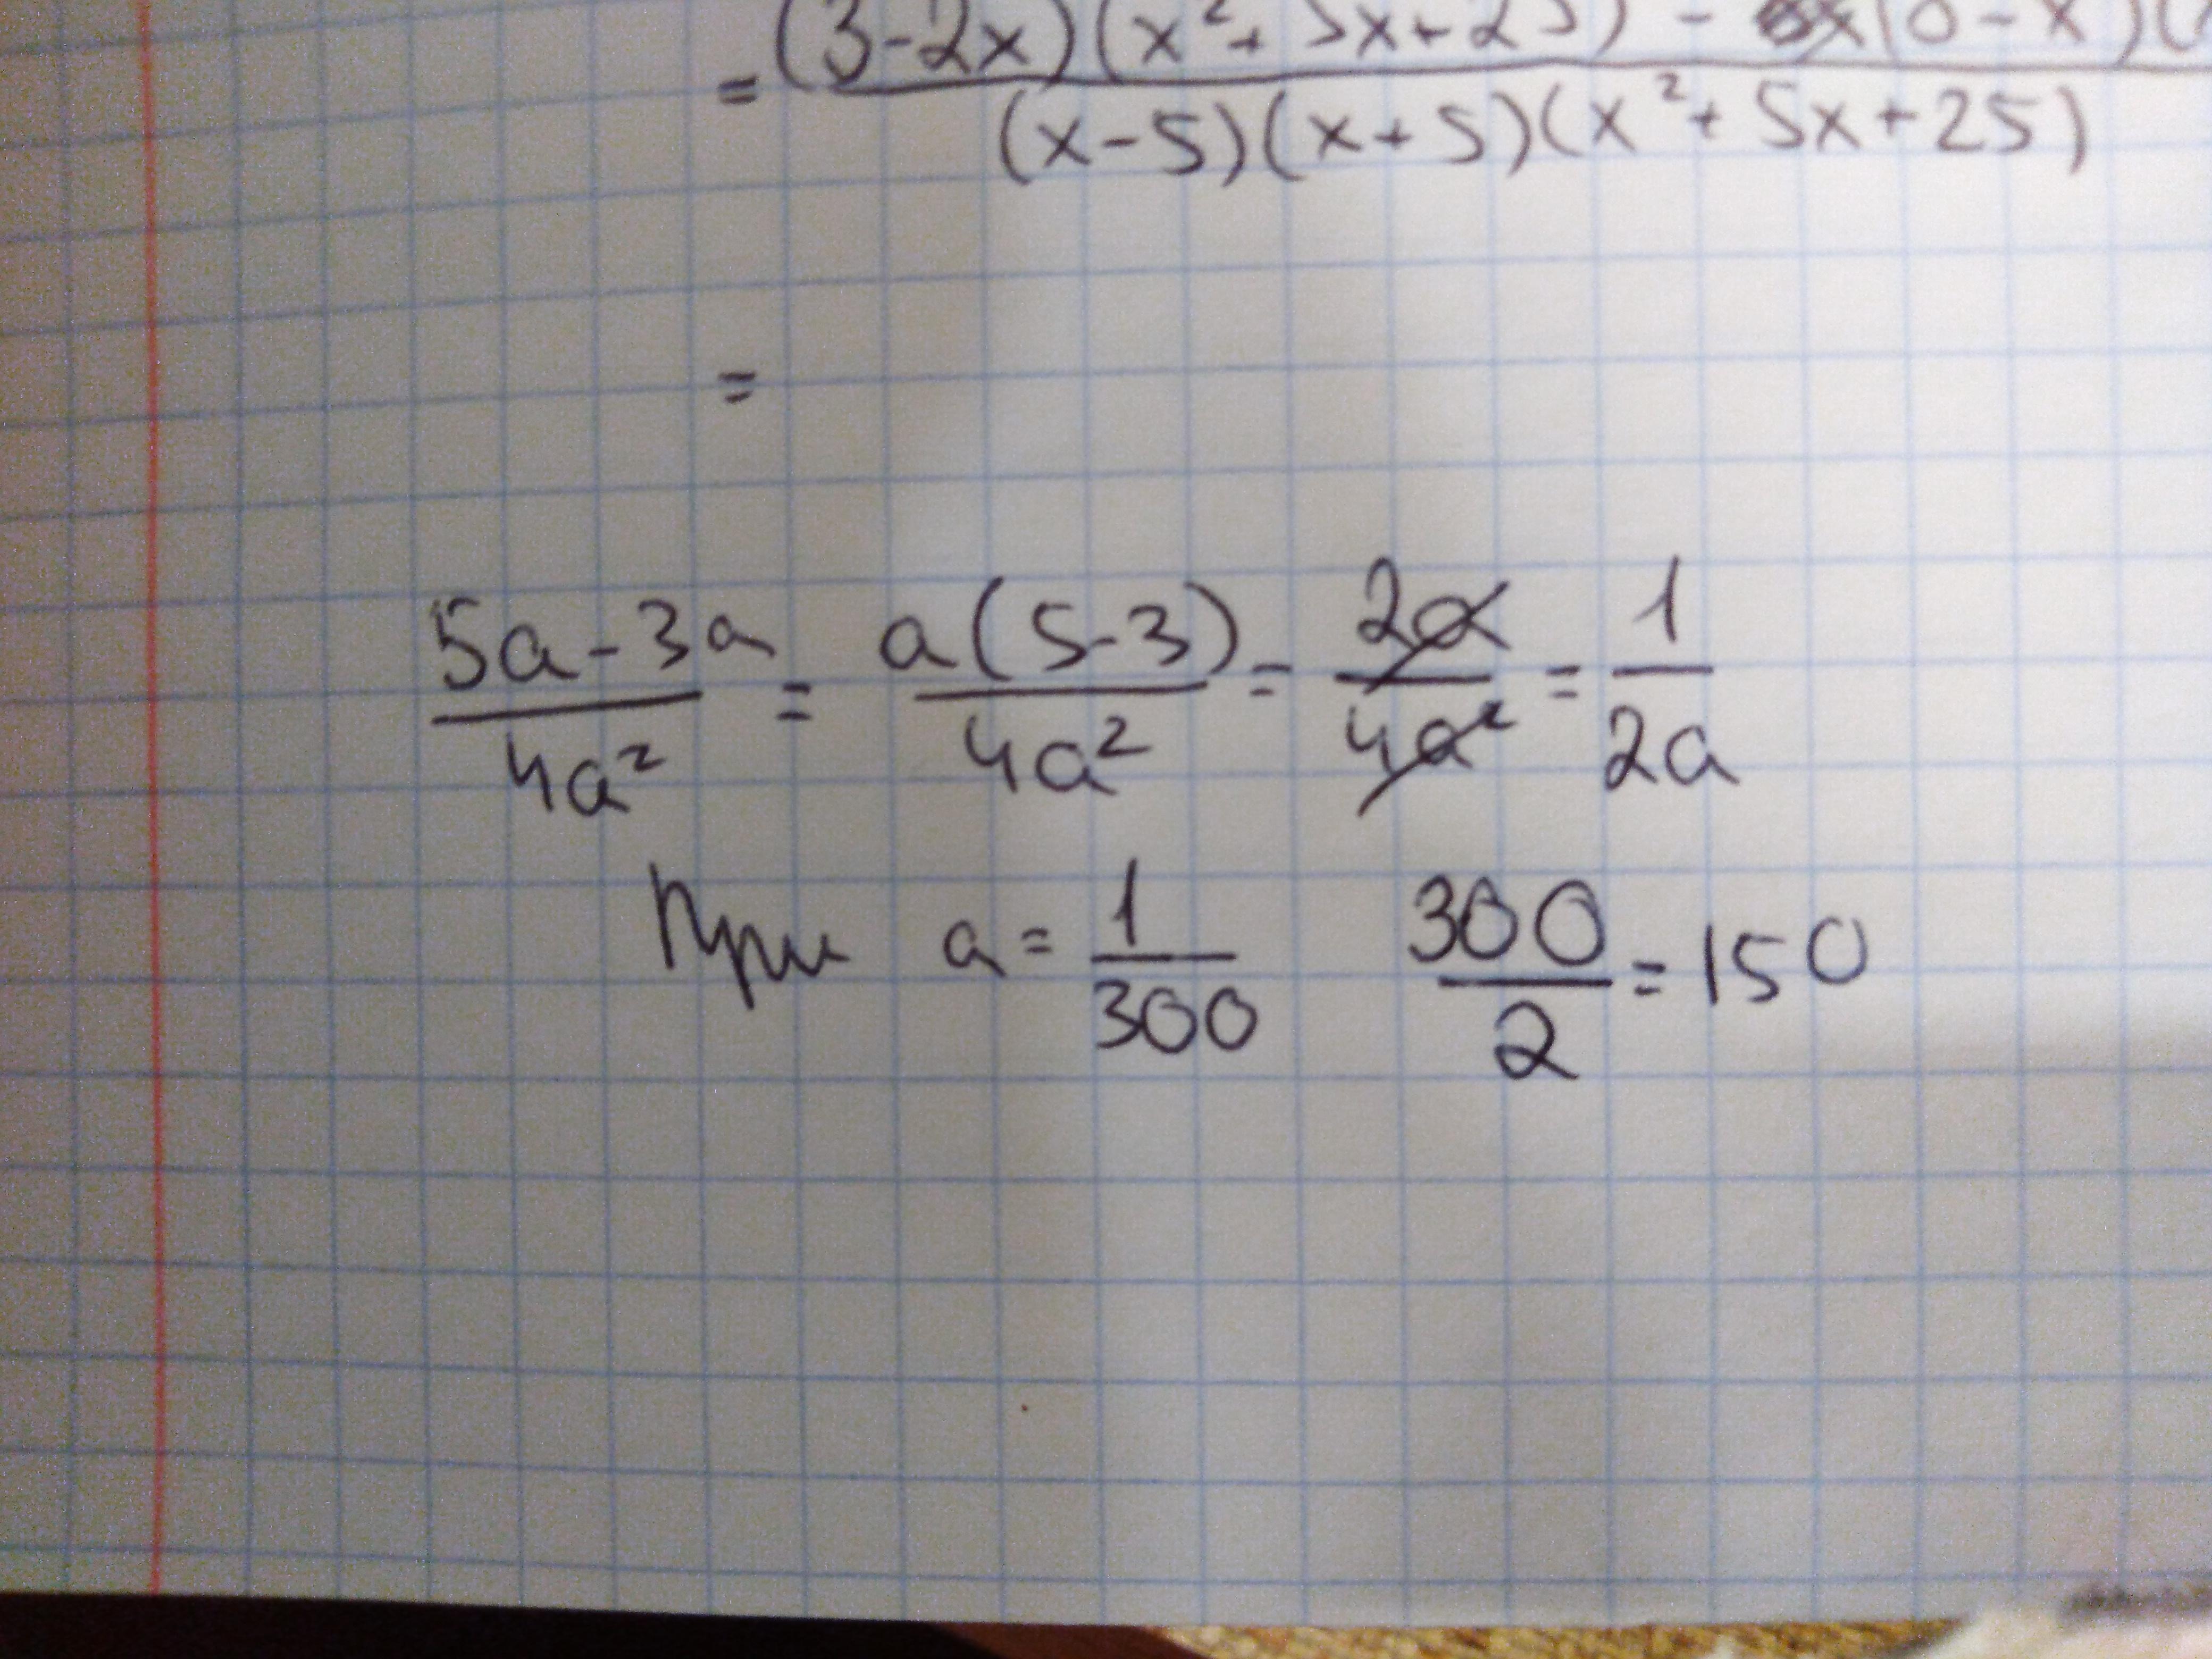 = (3-2x)(x²+5x+25) - (x
(x-5)(x+5)(x²+5x+25)
=
(5a-3a)/(4a²) = a(5-3)/(4a²) = 2a/(4a²) = 1/(2a)
При a = 1/300 300/2 = 150